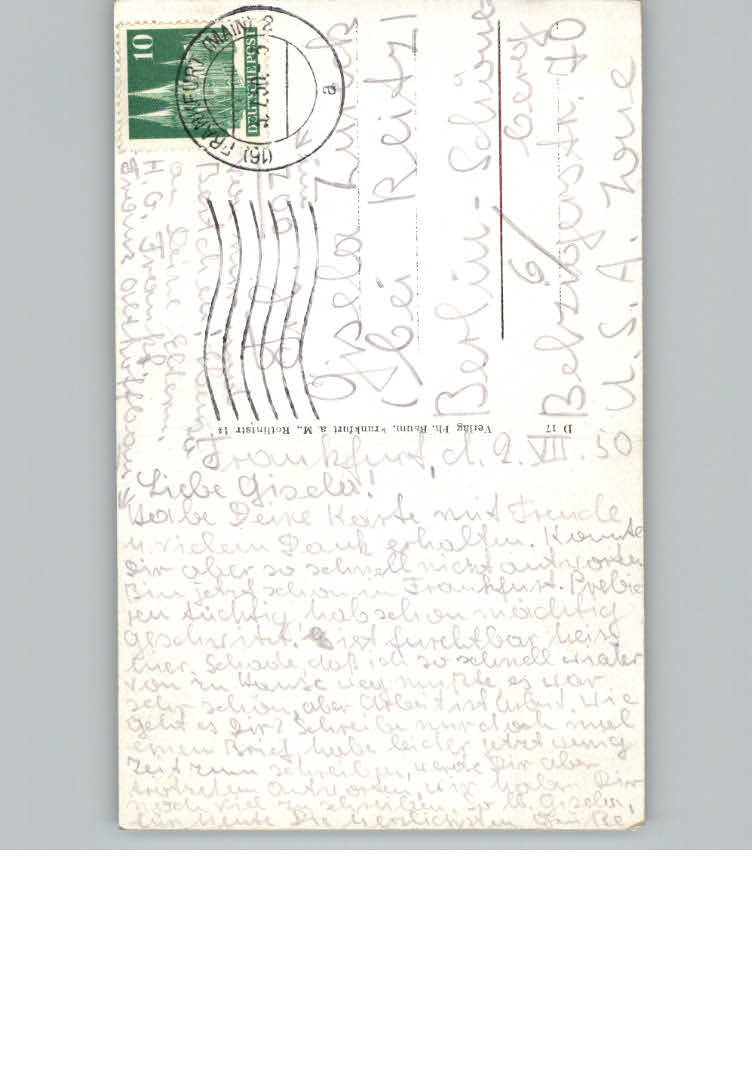 10
DEUTSCHE POST
(16) FRANKFURT (MAIN) 2
a
Gisela
(bei Reitzl
Berlin-Schöne
berg
Belzigerstr. 70
U.S.A. Zone
Verlag Ph. Baum, Frankfurt a. M., Rotlintstr
D 17
Frankfurt, d. 2. VII. 50
Liebe Gisela!
Habe Deine Karte mit Freude
u. vielem Dank erhalten. Konnte
Dir aber so schnell nicht antworten
Bin jetzt schon in Frankfurt. Probie
ren tüchtig, hab schon mächtig
geschwitzt. Es ist furchtbar heiss
hier. Schade daß ich so schnell wieder
von zu Hause weg mußte es war
sehr schön, aber Arbeit ist Arbeit. Wie
geht es Dir? Schreibe mir doch mal
einen Brief, habe leider jetzt wenig
Zeit zum schreiben, werde Dir aber
trotzdem antworten, wir haben Dir
noch viel zu schreiben. So lb. Gisela,
für heute die herzlichsten Grüße
an Deine Eltern
H. G.